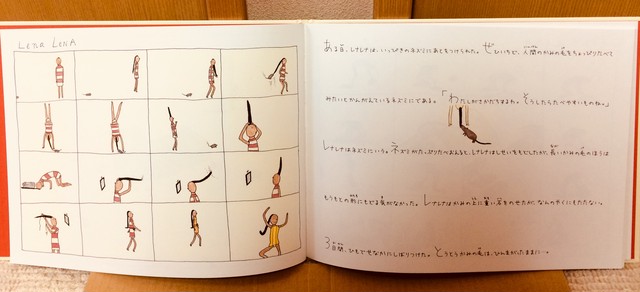 LENA LENA
ある日、レナレナは、いっぴきのネズミにあとをつけられた。ぜひいちど、人間のかみの毛をちょっぴりたべて
みたいとかんがえているネズミにである。「わたしがさかだちするわ。そうしたらたべやすいものね。」
レナレナはネズミにいう。ネズミがたっぷりたべおえると、レナレナはしせいをもどしたが、長いかみの毛のほうは
もうもとの形にもどる気がなかった。レナレナはかみの上に重い石をのせたが、なんのやくにもたたない。
3日間、ひもでせなかにしばりつけた。とうとうかみの毛は、ひんまがったままに…。